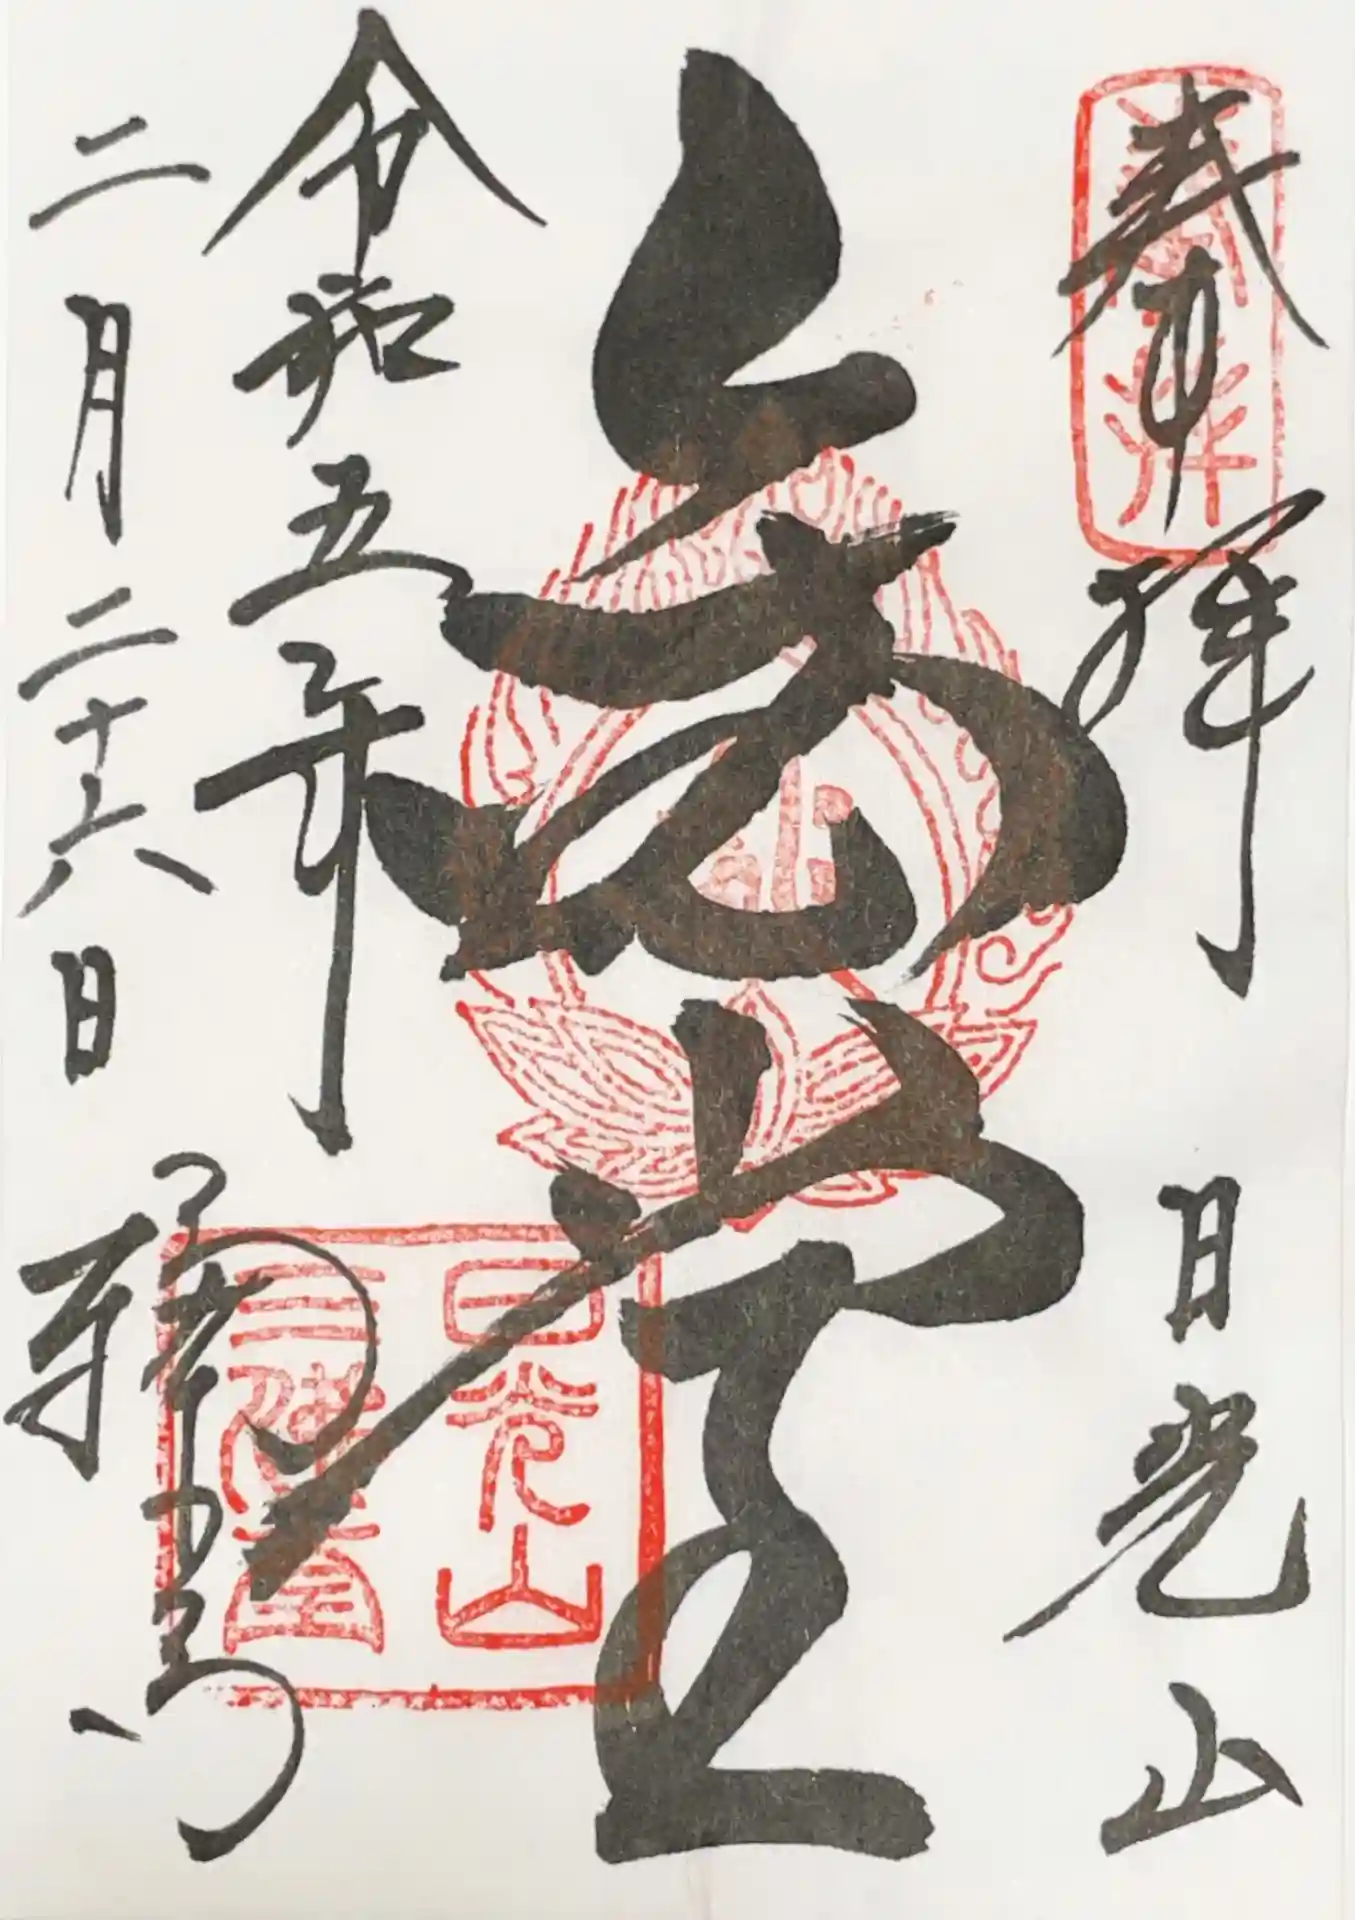 奉拝 日光山
金堂
令和五年
二月二十六日 輪王寺
奉拝
日光山
三佛堂